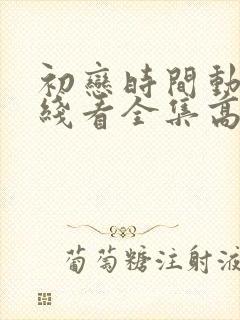 初戀時間動
綫看全集高
葡萄糖注射液